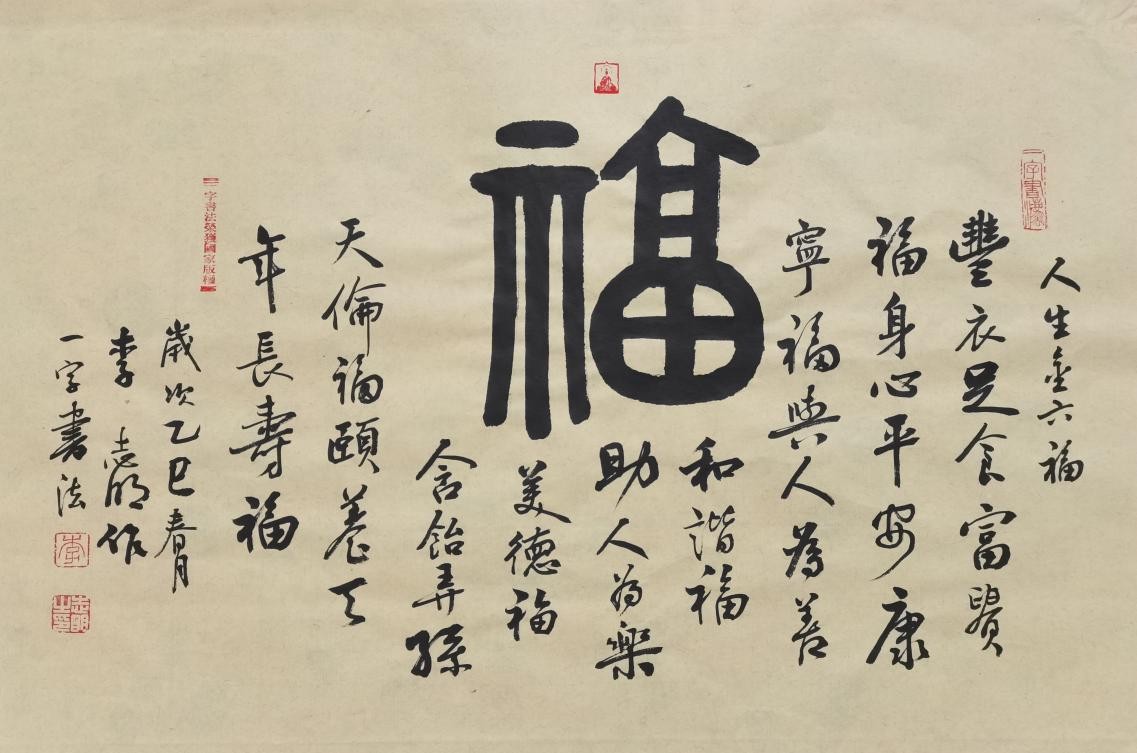 人生金六福
豐衣足食富貴
福身心平安康
寧福與人為善
福
和諧福
助人為樂
美德福
含飴弄孫
天倫福頤養天
年長壽福
一字書法榮獲國家版權
歲次乙巳春月
李志明作
一字書法
李
志明之印